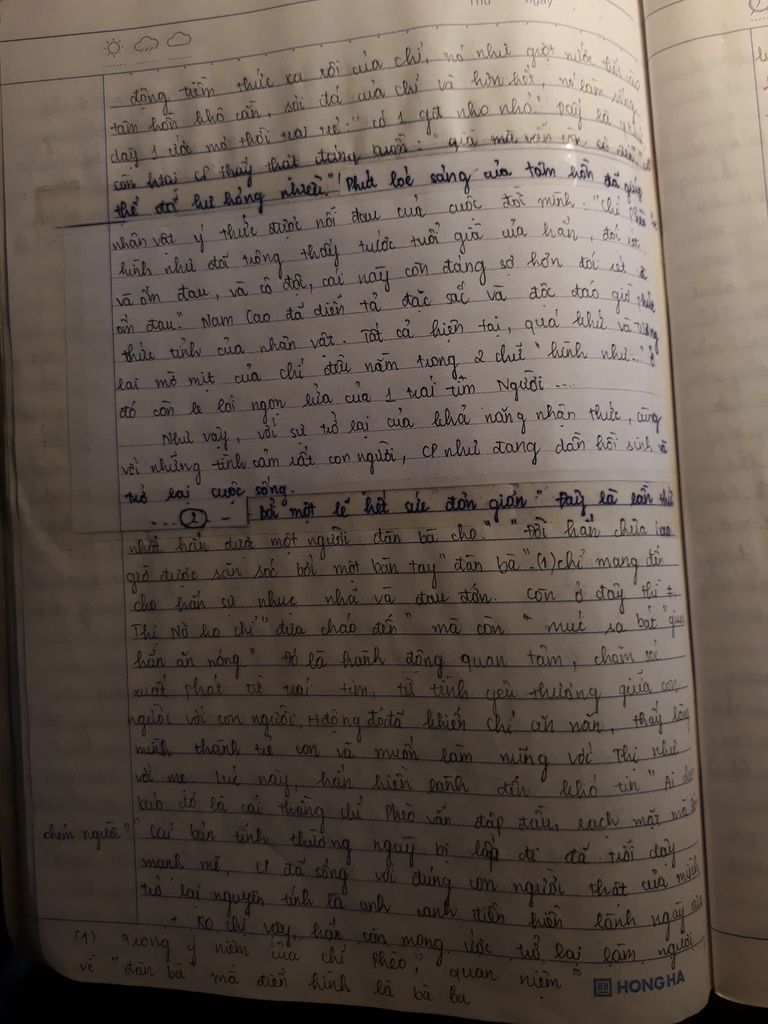 Thứ ngày
động tiềm thức xa xôi của chí, nó như giọt nước
tâm hồn khô cằn, sỏi đá của chí và hơn hết, nó làm sống
dậy 1 ước mơ thời trai trẻ: "có 1 gđ nho nhỏ". Đấy là
còn htại CP thấy thật đáng buồn: "già mà vẫn còn cô độc
thể đã hư hỏng nhiều." Phút loé sáng của tâm hồn đã giúp
nhân vật ý thức được nỗi đau của cuộc đời mình. "Chí Phèo
hình như đã trông thấy trước tuổi già của hắn, đói rét
và ốm đau, và cô độc, cái này còn đáng sợ hơn đói rét &
ốm đau." Nam Cao đã diễn tả đặc sắc và độc đáo giờ phút
thức tỉnh của nhân vật. Tất cả hiện tại, quá khứ và tương
lai mờ mịt của chí đều nằm trong 2 chữ "hình như..." ở
đó còn le lói ngọn lửa của 1 trái tim Người ...
Như vậy, với sự trở lại của khả năng nhận thức, cùng
với những tình cảm rất con người, CP như đang dần hồi sinh và
trở lại cuộc sống.
... (2) - bởi một lẽ hết sức đơn giản: "Đấy là lần thứ
nhất hắn được một người đàn bà cho." "Đời hắn chưa bao
giờ được săn sóc bởi một bàn tay "đàn bà". (1) chỉ mang đến
cho hắn sự nhục nhã và đau đớn. Còn ở đây thì ≠.
Thị Nở ko chỉ "đưa cháo đến" mà còn "múc ra bát giục
hắn ăn nóng." Đó là hành động quan tâm, chăm sóc
xuất phát từ trái tim, từ tình yêu thương giữa con
người với con người. Hđộng đó đã khiến chí ăn năn, thấy lòng
mình thành trẻ con và muốn làm nũng với Thị như
với mẹ. Lúc này, hắn hiền lành đến khó tin "Ai dám
bảo đó là cái thằng chí Phèo vẫn đập đầu, rạch mặt mà
chém người?" Cái bản tính thường ngày bị lấp đi đã trỗi dậy
mạnh mẽ, CP đã sống với đúng con người thật của mình
trở lại nguyên tính là anh canh điền hiền lành ngày
+ Ko chỉ vậy, hắn còn mong ước trở lại làm người
(1) Trong ý niệm của chí Phèo, quan niệm
về "đàn bà" mà điển hình là bà Ba
HONG HA